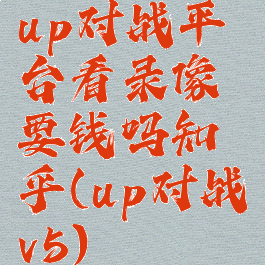 up对战平
台看录像
要钱吗知
乎(up对战
v5)